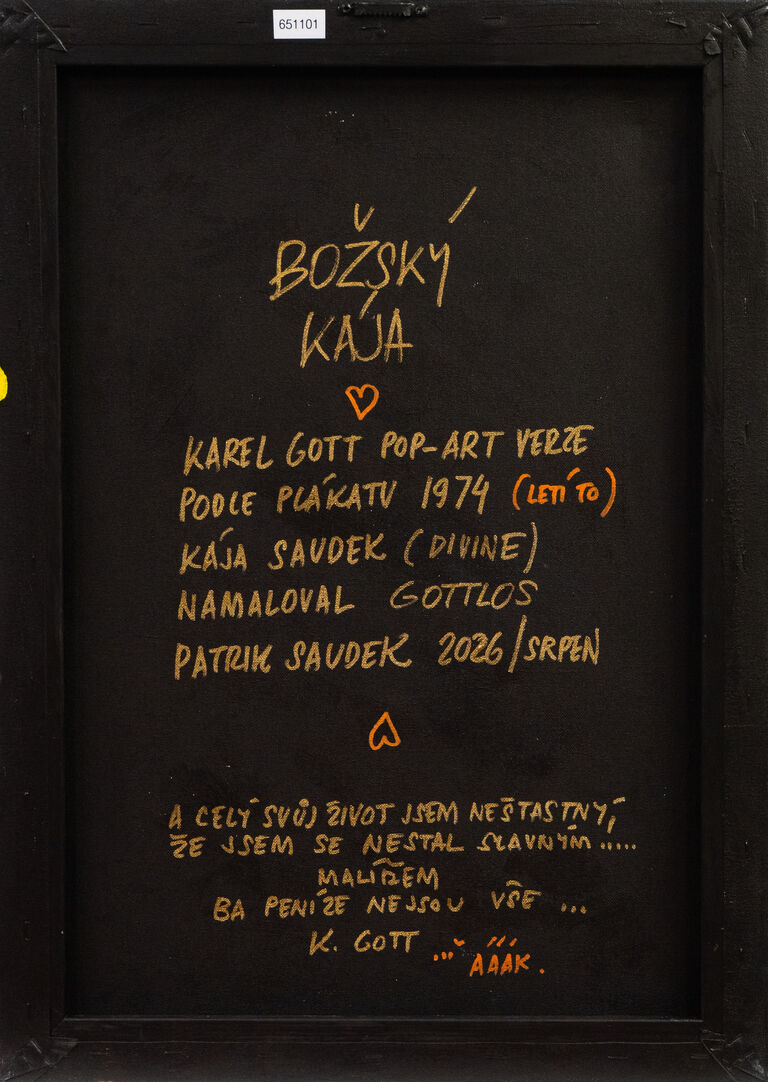 651101
BOŽSKÝ
KÁJA
KAREL GOTT POP-ART VERZE
PODLE PLÁKATU 1974 (LETÍ TO)
KÁJA SAUDEK (DIVINE)
NAMALOVAL GOTTLOS
PATRIK SAUDEK 2026/SRPEN
A CELÝ SVŮJ ŽIVOT JSEM NEŠTASTNÝ,
ŽE JSEM SE NESTAL SLAVNÝM .....
MALÍŘEM
BA PENÍZE NEJSOU VŠE ...
K. GOTT
ÁÁÁK.